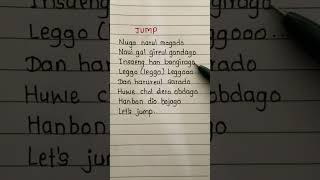 JUMP
Nuga narul magado
Naui gal gireul gandago
Insaeng han bangirago
Leggo (leggo) Leggooo
Dan harureul sarado
Huhwe chol dero obdago
Hanbon dio bojago
Let's jump.